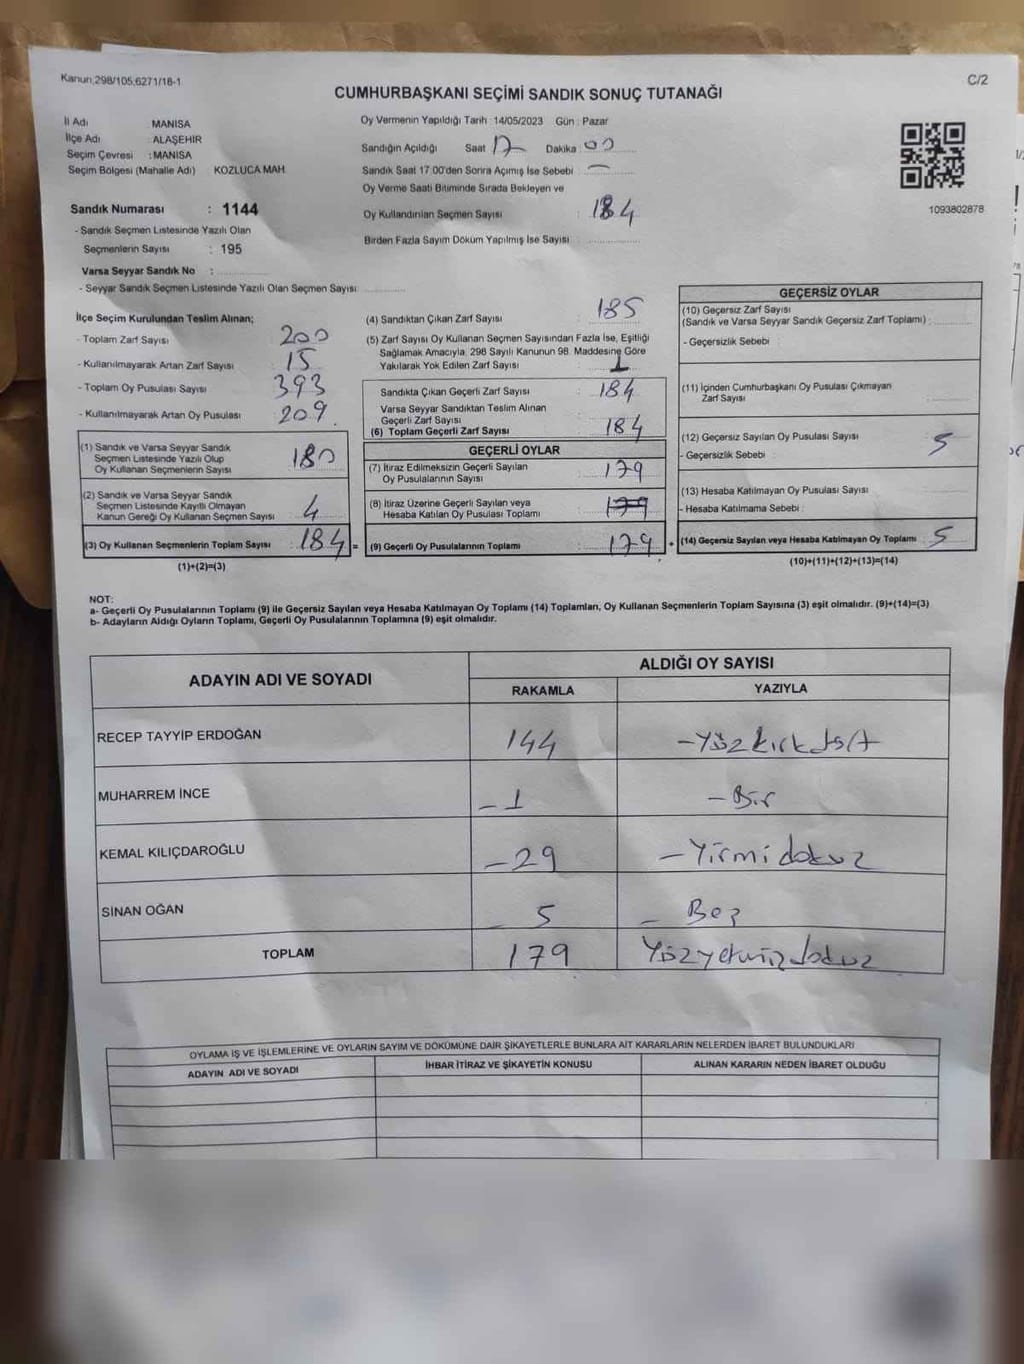 Kanun,298/105,6271/18-1
C/2
CUMHURBAŞKANI SEÇİMİ SANDIK SONUÇ TUTANAĞI
İl Adı MANİSA
İlçe Adı : ALAŞEHİR
Seçim Çevresi : MANİSA
Seçim Bölgesi (Mahalle Adı) KOZLUCA MAH
Sandık Numarası : 1144
- Sandık Seçmen Listesinde Yazılı Olan
Seçmenlerin Sayısı : 195
Varsa Seyyar Sandık No :
- Seyyar Sandık Seçmen Listesinde Yazılı Olan Seçmen Sayısı
Oy Vermenin Yapıldığı Tarih : 14/05/2023 Gün : Pazar
Sandığın Açıldığı Saat 17 Dakika : 00
Sandık Saat 17:00'den Sonra Açımış İse Sebebi :
Oy Verme Saati Bitiminde Sırada Bekleyen ve
Oy Kullandırılan Seçmen Sayısı : 184
Birden Fazla Sayım Döküm Yapılmış İse Sayısı
1093802878
İlçe Seçim Kurulundan Teslim Alınan;
- Toplam Zarf Sayısı : 200
- Kullanılmayarak Artan Zarf Sayısı : 15
- Toplam Oy Pusulası Sayısı : 393
- Kullanılmayarak Artan Oy Pusulası : 209
(1) Sandık ve Varsa Seyyar Sandık
Seçmen Listesinde Yazılı Olup
Oy Kullanan Seçmenlerin Sayısı : 180
(2) Sandık ve Varsa Seyyar Sandık
Seçmen Listesinde Kayıtlı Olmayan
Kanun Gereği Oy Kullanan Seçmen Sayısı : 4
(3) Oy Kullanan Seçmenlerin Toplam Sayısı : 184 =
(1)+(2)=(3)
(4) Sandıktan Çıkan Zarf Sayısı : 185
(5) Zarf Sayısı Oy Kullanan Seçmen Sayısından Fazla İse, Eşitliği
Sağlamak Amacıyla, 298 Sayılı Kanunun 98. Maddesine Göre
Yakılarak Yok Edilen Zarf Sayısı : 1
Sandıkta Çıkan Geçerli Zarf Sayısı : 184
Varsa Seyyar Sandıktan Teslim Alınan
Geçerli Zarf Sayısı
(6) Toplam Geçerli Zarf Sayısı : 184
GEÇERLİ OYLAR
(7) İtiraz Edilmeksizin Geçerli Sayılan
Oy Pusulalarının Sayısı : 179
(8) İtiraz Üzerine Geçerli Sayılan veya
Hesaba Katılan Oy Pusulası Toplamı : 179
(9) Geçerli Oy Pusulalarının Toplamı : 179 +
GEÇERSİZ OYLAR
(10) Geçersiz Zarf Sayısı
(Sandık ve Varsa Seyyar Sandık Geçersiz Zarf Toplamı) :
- Geçersizlik Sebebi :
(11) İçinden Cumhurbaşkanı Oy Pusulası Çıkmayan
Zarf Sayısı
(12) Geçersiz Sayılan Oy Pusulası Sayısı : 5
- Geçersizlik Sebebi :
(13) Hesaba Katılmayan Oy Pusulası Sayısı :
- Hesaba Katılmama Sebebi :
(14) Geçersiz Sayılan veya Hesaba Katılmayan Oy Toplamı : 5
(10)+(11)+(12)+(13)=(14)
NOT:
a- Geçerli Oy Pusulalarının Toplamı (9) ile Geçersiz Sayılan veya Hesaba Katılmayan Oy Toplamı (14) Toplamları, Oy Kullanan Seçmenlerin Toplam Sayısına (3) eşit olmalıdır. (9)+(14)=(3)
b- Adayların Aldığı Oyların Toplamı, Geçerli Oy Pusulalarının Toplamına (9) eşit olmalıdır.
ADAYIN ADI VE SOYADI
ALDIĞI OY SAYISI
RAKAMLA YAZIYLA
RECEP TAYYİP ERDOĞAN 144 - Yüzkırkdört
MUHARREM İNCE - 1 - Bir
KEMAL KILIÇDAROĞLU - 29 - Yirmidokuz
SİNAN OĞAN - 5 - Beş
TOPLAM 179 Yüzyetmişdokuz
OYLAMA İŞ VE İŞLEMLERİNE VE OYLARIN SAYIM VE DÖKÜMÜNE DAİR ŞİKAYETLERLE BUNLARA AİT KARARLARIN NELERDEN İBARET BULUNDUKLARI
ADAYIN ADI VE SOYADI İHBAR İTİRAZ VE ŞİKAYETİN KONUSU ALINAN KARARIN NEDEN İBARET OLDUĞU